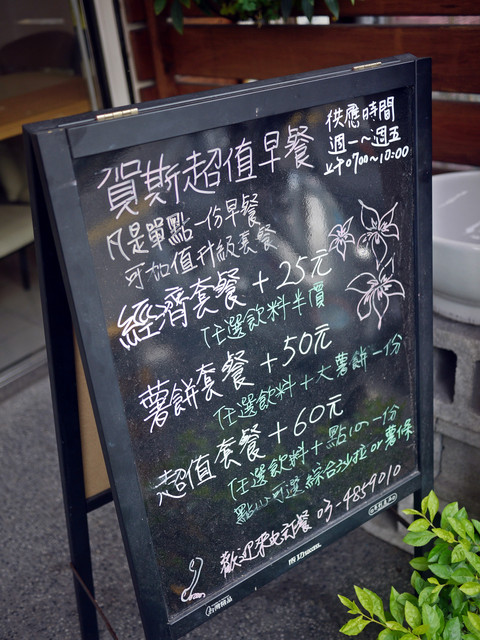 供應時間
週一～週五
上午0700～10:00
賀斯超值早餐
凡是單點一份早餐
可加值升級套餐
經濟套餐+25元
任選飲料半價
薯餅套餐+50元
任選飲料+大薯餅一份
超值套餐+60元
任選飲料+點心一份
點心可選綜合沙拉or薯條
歡迎來電訂餐 03-4859010